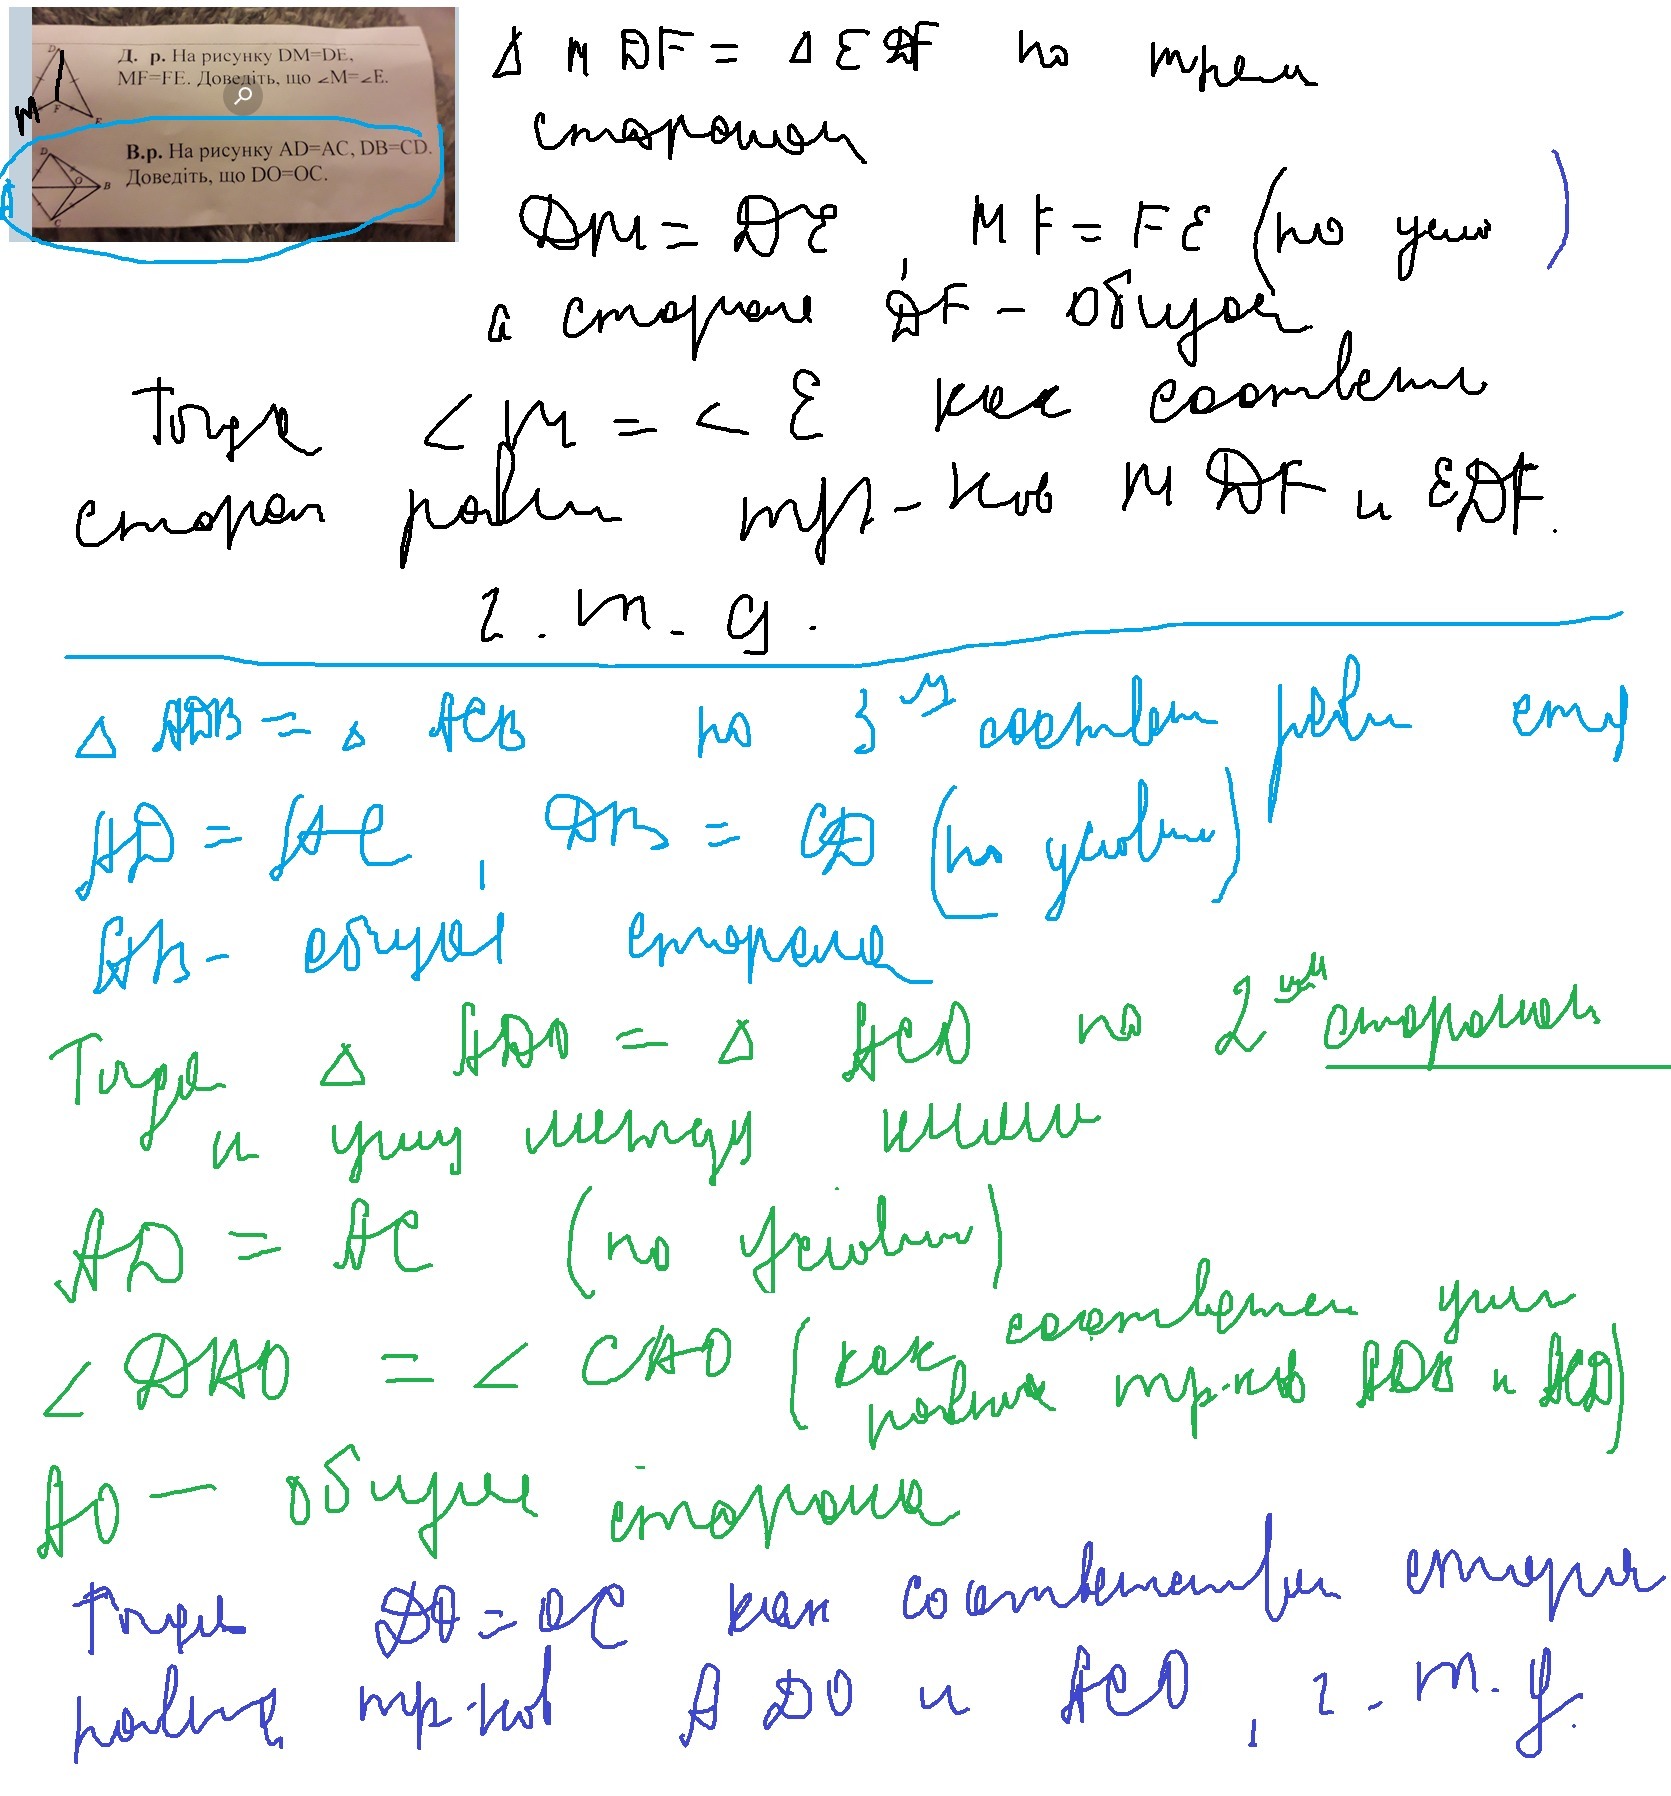 Д. р. На рисунку DM=DE,
MF=FE. Доведіть, що ∠M=∠E.
В.р. На рисунку AD=AC, DB=CD.
Доведіть, що DO=OC.
D
M
F
E
D
A
O
B
C
Δ MDF = Δ EDF по трем
сторонам
DM = DE, MF = FE (по усло)
а сторона DF - общая
Тогда < M = < E как соответ
сторон равн тр-ков MDF и EDF.
ч. т. д.
Δ ADB = Δ ACB по 3м соответ равн стор
AD = AC, DB = CD (по условию)
AB - общая сторона
Тогда Δ ADO = Δ ACO по 2ум сторонам
и углу между ними
AD = AC (по условию)
< DAO = < CAO (как соответствен углы
равных тр-ков ADB и ACD)
AO - общая сторона
Тогда DO = OC как соответствен стороны
равных тр-ков ADO и ACO, ч. т. д.